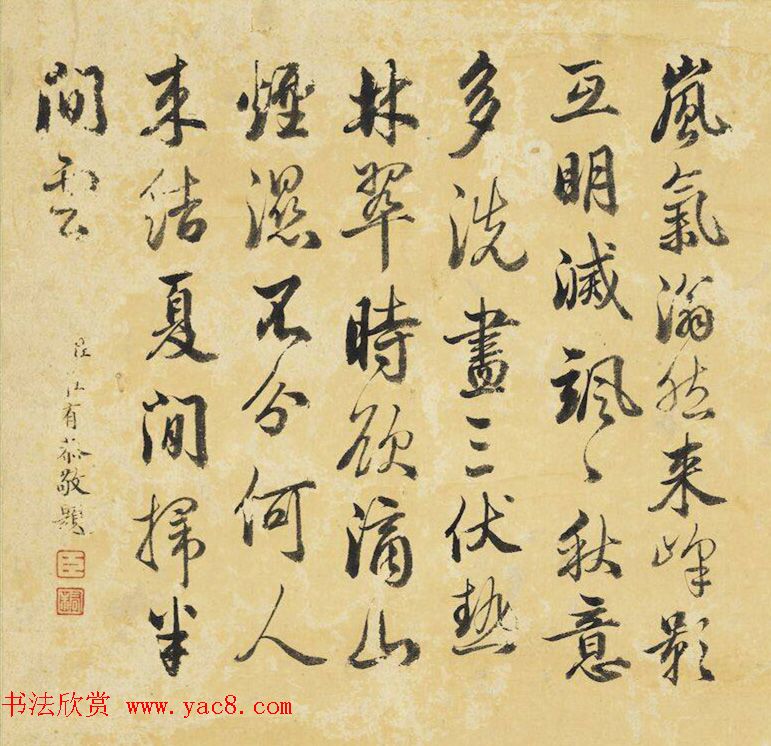 嵐氣滃然来峰影
互明滅颯〻秋意
多洗盡三伏熱
林翠時欲滴山
煙濕不分何人
来结夏間掃半
間雲
臣莊有恭敬題
书法欣赏 www.yac8.com